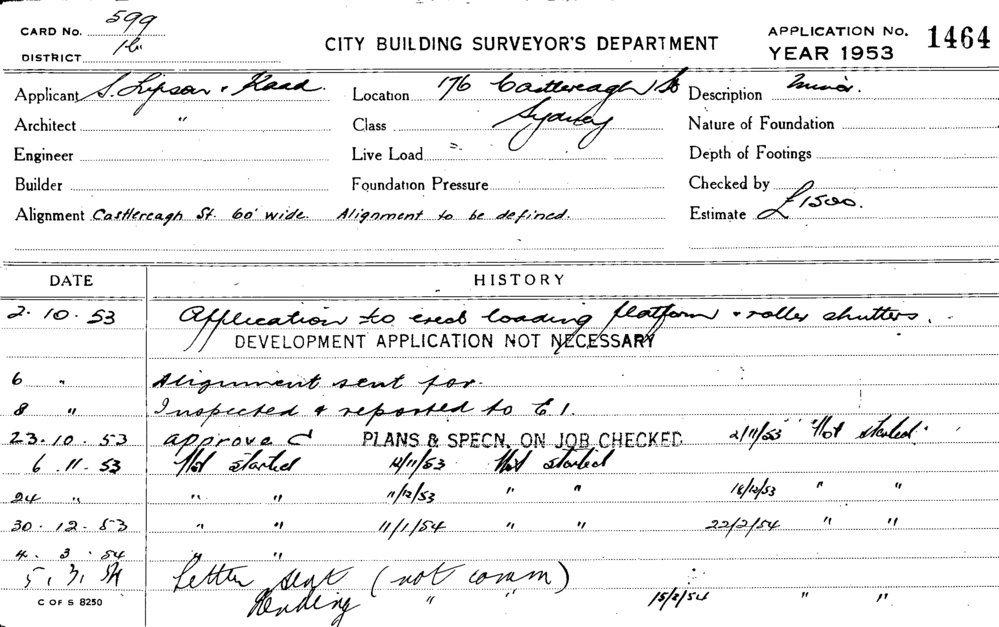 CARD No. 599
DISTRICT
CITY BUILDING SURVEYOR'S DEPARTMENT
APPLICATION No. 1464
YEAR 1953
Applicant S. Lipson & Kaad. Location 176 Castlereagh St Description Minor.
Architect " Class Sydney Nature of Foundation
Engineer Live Load Depth of Footings
Builder Foundation Pressure Checked by
Alignment Castlereagh St. 60' wide. Alignment to be defined. Estimate £1500.
DATE HISTORY
2.10.53 Application to erect loading platform & roller shutters.
DEVELOPMENT APPLICATION NOT NECESSARY
6 " Alignment sent for.
8 " Inspected & reported to E.I.
23.10.53 approved PLANS & SPECN. ON JOB CHECKED 2/11/53 "Not started"
6.11.53 Not started 12/11/53 Not started
24 " " " 11/12/53 " " 18/12/53 " "
30.12.53 " " 11/1/54 " " 22/2/54 " "
4.3.54 " "
5.3.54 Letter sent (not comm)
Pending " " 15/2/54 " "
C OF S 8250